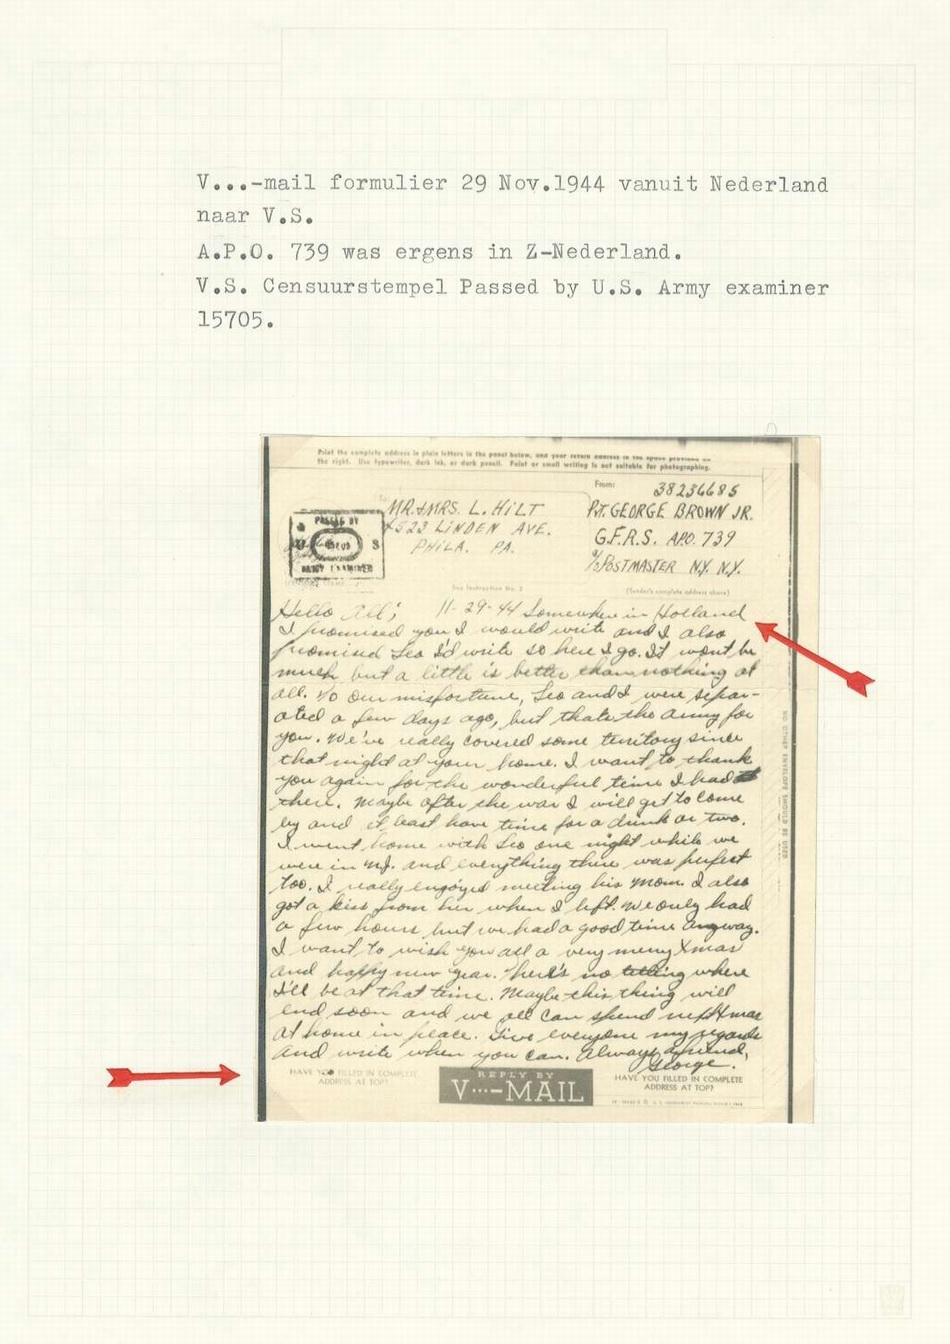 V...-mail formulier 29 Nov.1944 vanuit Nederland
naar V.S.
A.P.O. 739 was ergens in Z-Nederland.
V.S. Censuurstempel Passed by U.S. Army examiner
15705.
Print the complete address in plain letters in the panel below, and your return address in the space provided on
the right. Use typewriter, dark ink, or dark pencil. Faint or small writing is not suitable for photographing.
To:
From:
38236685
MR.&MRS. L. HILT
Pvt. GEORGE BROWN JR.
4523 LINDEN AVE.
G.F.R.S. APO. 739
PHILA. PA.
c/o POSTMASTER N.Y. N.Y.
PASSED BY
U S
ARMY EXAMINER
See Instruction No. 2
(Sender's complete address above)
Hello All; 11-29-44 Somewhere in Holland
I promised you I would write and I also
promised Leo I'd write so here I go. It won't be
much but a little is better than nothing at
all. To our misfortune, Leo and I were separ-
ated a few days ago, but thats the army for
you. We've really covered some territory since
that night at your home. I want to thank
you again for the wonderful time I had
there. Maybe after the war I will get to come
by and at least have time for a drink or two.
I went home with Leo one night while we
were in N.J. and everything there was perfect
too. I really enjoyed meeting his Mom. I also
got a kiss from her when I left. We only had
a few hours but we had a good time anyway.
I want to wish you all a very merry Xmas
and happy new year. There's no telling where
I'll be at that time. Maybe this thing will
end soon and we all can spend next Xmas
at home in peace. Give everyone my regards
and write when you can. Always a friend,
George.
HAVE YOU FILLED IN COMPLETE
ADDRESS AT TOP?
REPLY BY
V···—MAIL
HAVE YOU FILLED IN COMPLETE
ADDRESS AT TOP?
NO OTHER ENVELOPE SHOULD BE USED